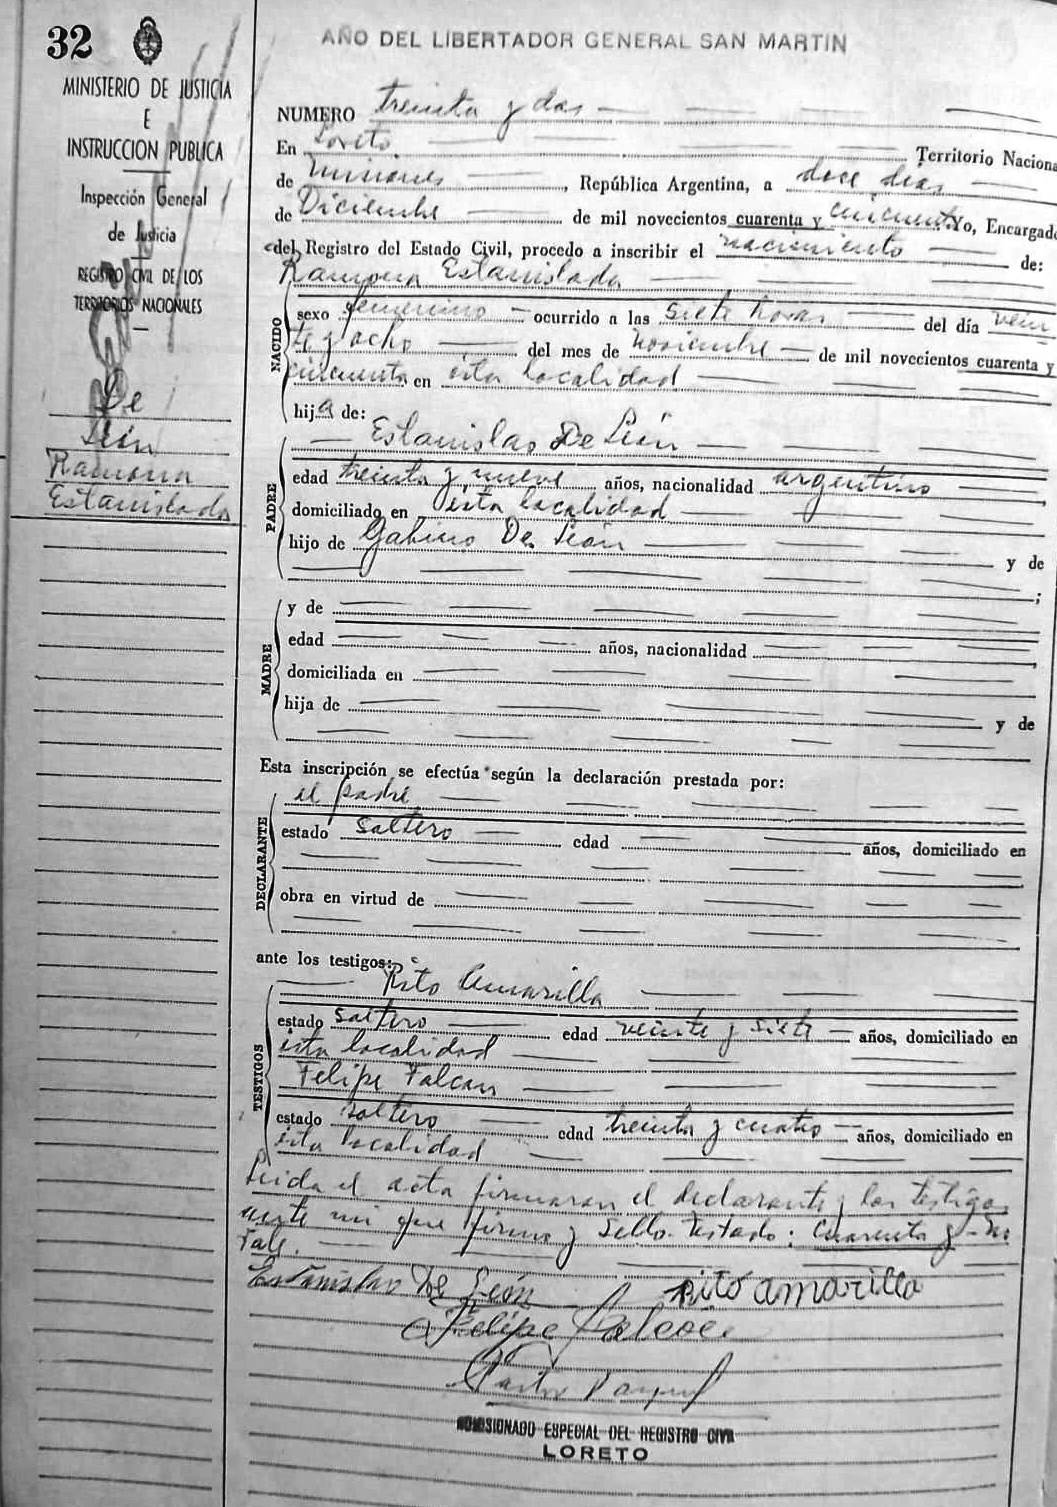 32
MINISTERIO DE JUSTICIA
E
INSTRUCCION PUBLICA
Inspección General
de Justicia
REGISTRO CIVIL DE LOS
TERRITORIOS NACIONALES
De
León
Ramona
Estanislada
AÑO DEL LIBERTADOR GENERAL SAN MARTIN
NUMERO treinta y dos
En Loreto Territorio Naciona
de Misiones, República Argentina, a doce dias
de Diciembre de mil novecientos cuarenta y cincuenta. Yo, Encargad
del Registro del Estado Civil, procedo a inscribir el nacimiento de:
Ramona Estanislada
NACIDO
sexo femenino ocurrido a las siete horas del día vein
te y ocho del mes de noviembre de mil novecientos cuarenta y
cincuenta en esta localidad
hija de:
Estanislao De León
PADRE
edad treinta y nueve años, nacionalidad argentino
domiciliado en esta localidad
hijo de Gabino De León y de
;
MADRE
y de
edad años, nacionalidad
domiciliada en
hija de y de
Esta inscripción se efectúa según la declaración prestada por:
el padre
DECLARANTE
estado soltero edad años, domiciliado en
obra en virtud de
ante los testigos:
Rito Amarilla
TESTIGOS
estado soltero edad veinte y siete años, domiciliado en
esta localidad
Felipe Falcon
estado soltero edad treinta y cuatro años, domiciliado en
esta localidad
Leida el acta firmaran el declarante y los testigo
ante mi que firmo y sello. Testado: cuarenta y - No
vale.
Estanislao De León rito amarilla
Felipe Falcon
COMISIONADO ESPECIAL DEL REGISTRO CIVIL
LORETO